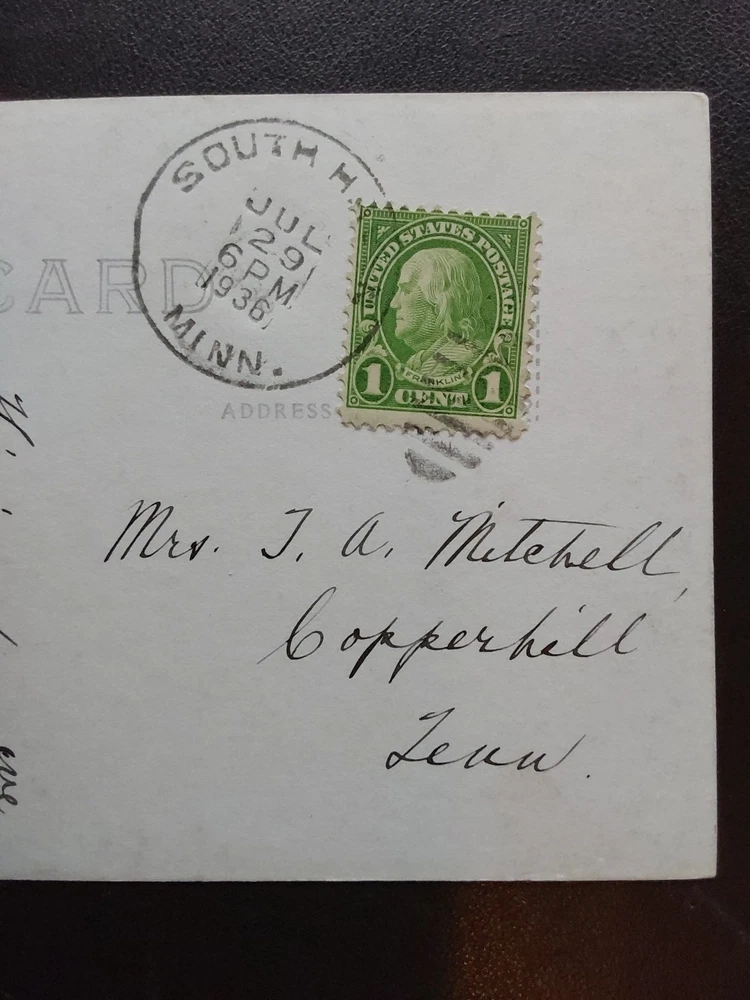 SOUTH H
JUL
29
6 PM
1936
MINN.
CARD
UNITED STATES POSTAGE
FRANKLIN
1 CENT 1
ADDRESS
Mrs. T. A. Mitchell,
Copperhill
Tenn.